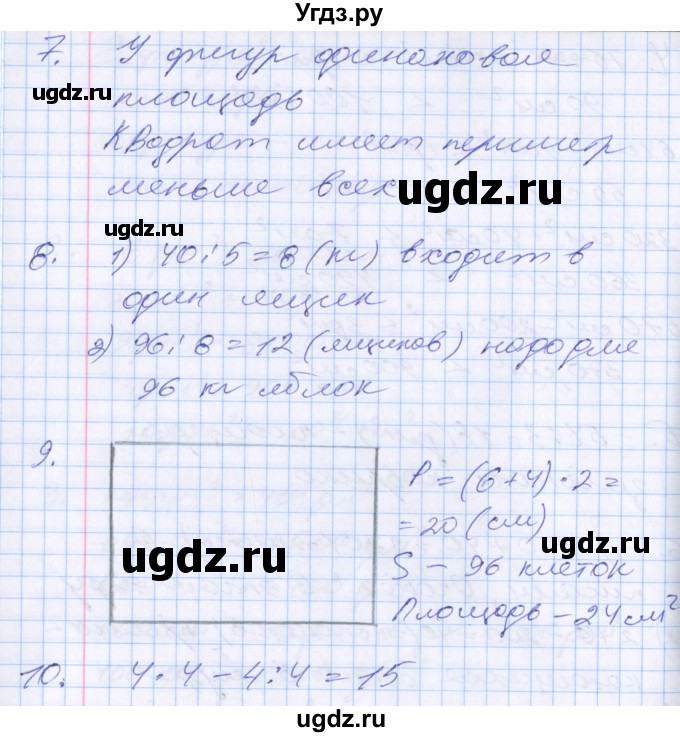 Угдз.ру
7. У фигур одинаковая
площадь
Квадрат имеет периметр
меньше всех
ugdz.ru
ugdz.ru
8. 1) 40:5=8 (кг) входит в
один ящик
2) 96:8=12 (ящиков) надо для
96 кг яблок
9.
P=(6+4)·2=
=20 (см)
ugdz.ru
ugdz.ru
S – 96 клеток
Площадь – 24 см²
10. 4·4-4:4=15
ugdz.ru